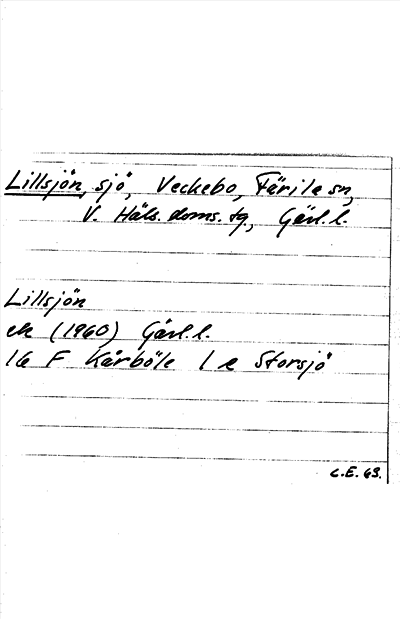 Lillsjön, sjö, Veckebo, Färila sn,
V. Häls. doms. tg, Gävl. l.
Lillsjön
ek (1960) Gävl. l.
16 F Kårböle 1 e Storsjö
C.E. 63.